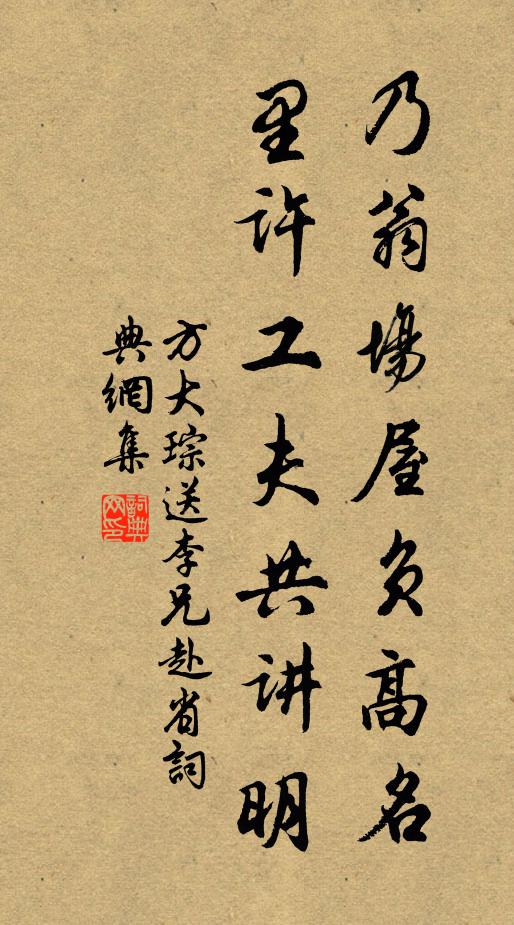 乃翁場屋負高名
里許工夫共讲明
方大琮送李兄赴省詞
典網集
詞典
网印